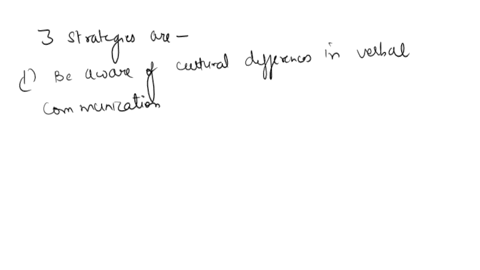 3 strategies are -
1) Be aware of cultural differences in verbal
communication